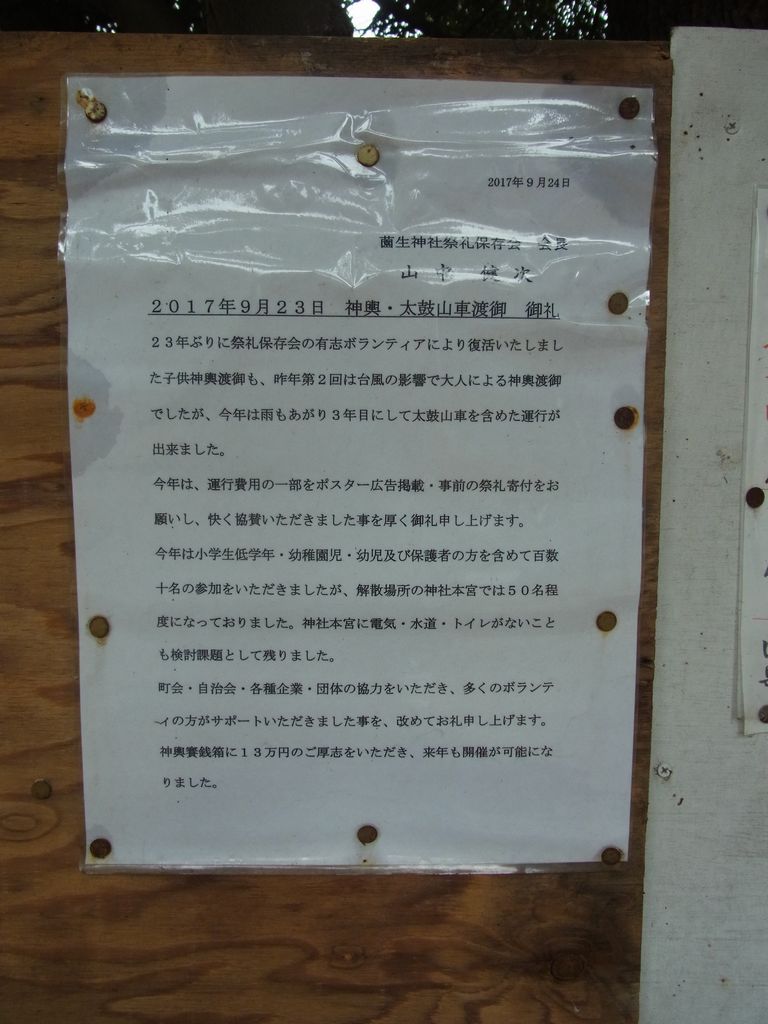 2017年9月24日
菌生神社祭礼保存会　会長
山中　健次
２０１７年９月２３日　神輿・太鼓山車渡御　御礼
２３年ぶりに祭礼保存会の有志ボランティアにより復活いたしまし
た子供神輿渡御も、昨年第２回は台風の影響で大人による神輿渡御
でしたが、今年は雨もあがり３年目にして太鼓山車を含めた運行が
出来ました。
今年は、運行費用の一部をポスター広告掲載・事前の祭礼寄付をお
願いし、快く協賛いただきました事を厚く御礼申し上げます。
今年は小学生低学年・幼稚園児・幼児及び保護者の方を含めて百数
十名の参加をいただきましたが、解散場所の神社本宮では５０名程
度になっておりました。神社本宮に電気・水道・トイレがないこと
も検討課題として残りました。
町会・自治会・各種企業・団体の協力をいただき、多くのボランテ
ィの方がサポートいただきました事を、改めてお礼申し上げます。
神輿賽銭箱に１３万円のご厚志をいただき、来年も開催が可能にな
りました。